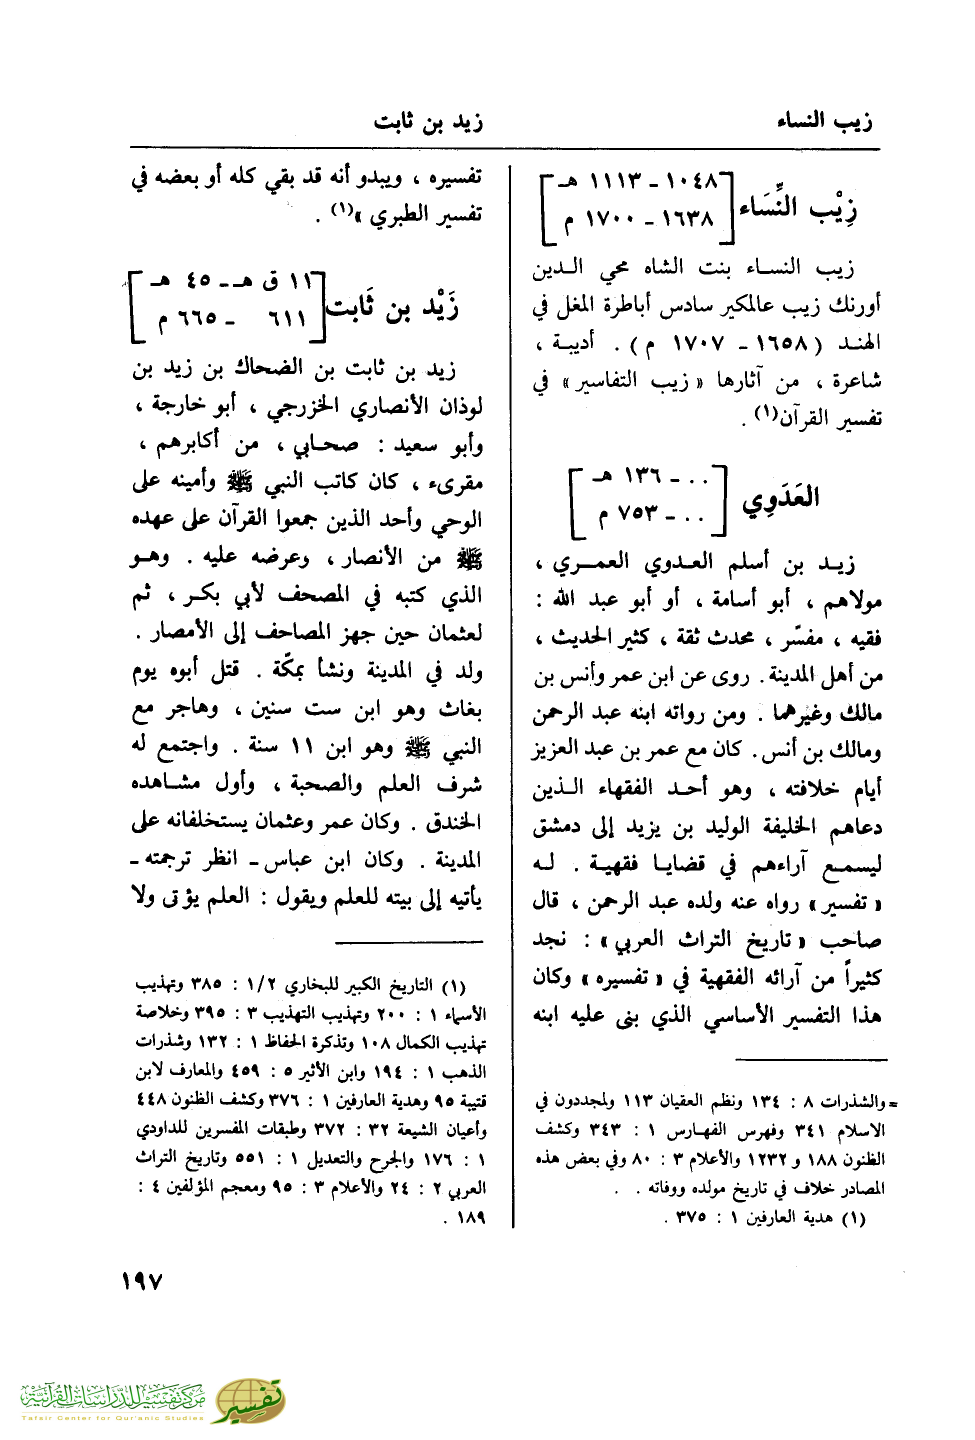 زيب النساء
زيد بن ثابت
زِيْب النِّسَاء
[١٠٤٨ - ١١١٣ هـ
١٦٣٨ - ١٧٠٠ م]
زيب النساء بنت الشاه محي الدين
أورنك زيب عالمكير سادس أباطرة المغل في
الهند (١٦٥٨ - ١٧٠٧ م) . أديبة ،
شاعرة ، من آثارها « زيب التفاسير» في
تفسير القرآن(١) .
العَدَوِي
[٠٠ - ١٣٦ هـ
٠٠ - ٧٥٣ م]
زيد بن أسلم العدوي العمري ،
مولاهم ، أبو أسامة ، أو أبو عبد الله :
فقيه ، مفسّر ، محدث ثقة ، كثير الحديث ،
من أهل المدينة . روى عن ابن عمر وأنس بن
مالك وغيرهما . ومن رواته ابنه عبد الرحمن
ومالك بن أنس . كان مع عمر بن عبد العزيز
أيام خلافته ، وهو أحد الفقهاء الذين
دعاهم الخليفة الوليد بن يزيد إلى دمشق
ليسمع آراءهم في قضايا فقهية . له
« تفسير» رواه عنه ولده عبد الرحمن ، قال
صاحب « تاريخ التراث العربي» : نجد
كثيراً من آرائه الفقهية في « تفسيره» وكان
هذا التفسير الأساسي الذي بنى عليه ابنه
= والشذرات ٨ : ١٣٤ ونظم العقيان ١١٣ والمجددون في
الاسلام ٣٤١ وفهرس الفهارس ١ : ٣٤٣ وكشف
الظنون ١٨٨ و ١٢٣٢ والأعلام ٣ : ٨٠ وفي بعض هذه
المصادر خلاف في تاريخ مولده ووفاته .
(١) هدية العارفين ١ : ٣٧٥ .
تفسيره ، ويبدو أنه قد بقي كله أو بعضه في
تفسير الطبري »(١) .
زَيْد بن ثَابت
[١١ ق هـ - ٤٥ هـ
٦١١ - ٦٦٥ م]
زيد بن ثابت بن الضحاك بن زيد بن
لوذان الأنصاري الخزرجي ، أبو خارجة ،
وأبو سعيد : صحابي ، من أكابرهم ،
مقرىء ، كان كاتب النبي ﷺ وأمينه على
الوحي وأحد الذين جمعوا القرآن على عهده
ﷺ من الأنصار ، وعرضه عليه . وهو
الذي كتبه في المصحف لأبي بكر ، ثم
لعثمان حين جهز المصاحف إلى الأمصار .
ولد في المدينة ونشأ بمكّة . قتل أبوه يوم
بغاث وهو ابن ست سنين ، وهاجر مع
النبي ﷺ وهو ابن ١١ سنة . واجتمع له
شرف العلم والصحبة ، وأول مشاهده
الخندق . وكان عمر وعثمان يستخلفانه على
المدينة . وكان ابن عباس - انظر ترجمته -
يأتيه إلى بيته للعلم ويقول : العلم يؤتى ولا
(١) التاريخ الكبير للبخاري ١/٢ : ٣٨٥ وتهذيب
الأسماء ١ : ٢٠٠ وتهذيب التهذيب ٣ : ٣٩٥ وخلاصة
تهذيب الكمال ١٠٨ وتذكرة الحفاظ ١ : ١٣٢ وشذرات
الذهب ١ : ١٩٤ وابن الأثير ٥ : ٤٥٩ والمعارف لابن
قتيبة ٩٥ وهدية العارفين ١ : ٣٧٦ وكشف الظنون ٤٤٨
وأعيان الشيعة ٣٢ : ٣٧٢ وطبقات المفسرين للداودي
١ : ١٧٦ والجرح والتعديل ١ : ٥٥١ وتاريخ التراث
العربي ٢ : ٢٤ والأعلام ٣ : ٩٥ ومعجم المؤلفين ٤ :
١٨٩ .
١٩٧
مركز تفسير للدراسات القرآنية
Tafsir Center for Qur'anic Studies
تفسير